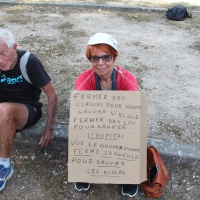 FERMER DES
CLASSES POUR
SAUVER L'ECOLE
FERMER DES LITS
POUR SAUVER
L'HOPITAL
QUE LE GOUVERNEMENT
FERME SA GUEULE
POUR SAUVER
LES ECOLES